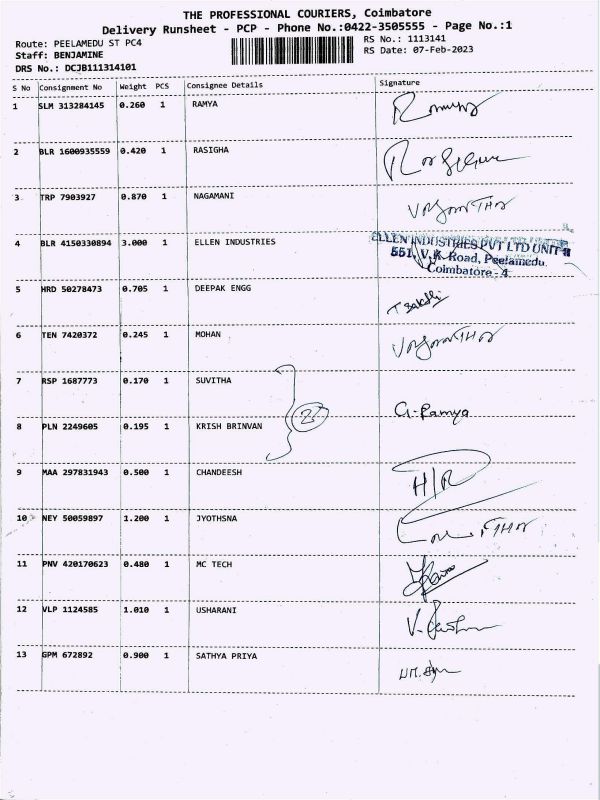 THE PROFESSIONAL COURIERS, Coimbatore
Delivery Runsheet - PCP - Phone No.:0422-3505555 - Page No.:1
Route: PEELAMEDU ST PC4
RS No.: 1113141
Staff: BENJAMINE
RS Date: 07-Feb-2023
DRS No.: DCJB111314101
S No Consignment No Weight PCS Consignee Details Signature
1 SLM 313284145 0.260 1 RAMYA
2 BLR 1600935559 0.420 1 RASIGHA
3 TRP 7903927 0.870 1 NAGAMANI
4 BLR 4150330894 3.000 1 ELLEN INDUSTRIES
ELLEN INDUSTRIES PVT LTD UNIT II
551, V.K. Road, Peelamedu,
Coimbatore - 4
5 HRD 50278473 0.705 1 DEEPAK ENGG
6 TEN 7420372 0.245 1 MOHAN
7 RSP 1687773 0.170 1 SUVITHA
2 G. Ramya
8 PLN 2249605 0.195 1 KRISH BRINVAN
9 MAA 297831943 0.500 1 CHANDEESH H/R
10 NEY 50059897 1.200 1 JYOTHSNA
11 PNV 420170623 0.480 1 MC TECH
12 VLP 1124585 1.010 1 USHARANI
13 GPM 672892 0.900 1 SATHYA PRIYA